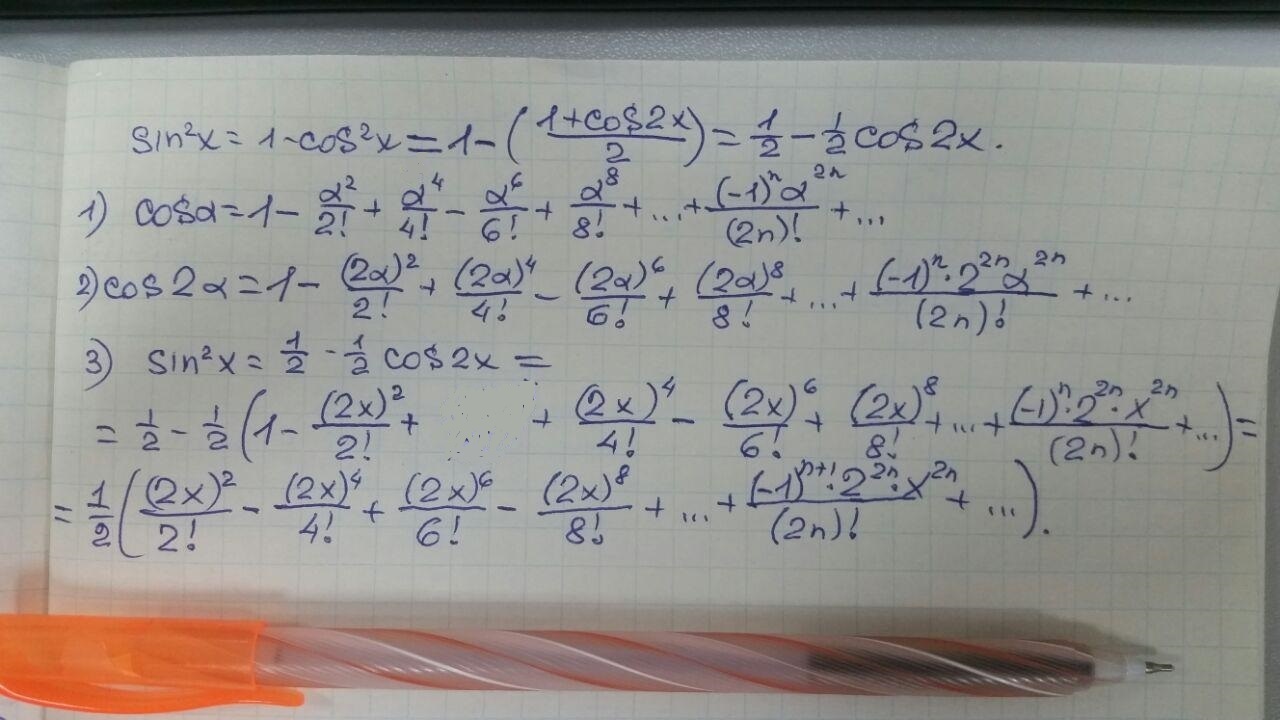 sin²x = 1 - cos²x = 1 - ((1+cos2x)/2) = 1/2 - 1/2 cos2x.
1) cosα = 1 - α²/2! + α⁴/4! - α⁶/6! + α⁸/8! + ... + (-1)ⁿα²ⁿ/(2n)! + ...
2) cos2α = 1 - (2α)²/2! + (2α)⁴/4! - (2α)⁶/6! + (2α)⁸/8! + ... + (-1)ⁿ·2²ⁿα²ⁿ/(2n)! + ...
3) sin²x = 1/2 - 1/2 cos2x =
= 1/2 - 1/2 (1 - (2x)²/2! + + (2x)⁴/4! - (2x)⁶/6! + (2x)⁸/8! + ... + (-1)ⁿ·2²ⁿ·x²ⁿ/(2n)! + ...) =
= 1/2 ((2x)²/2! - (2x)⁴/4! + (2x)⁶/6! - (2x)⁸/8! + ... + (-1)ⁿ⁺¹·2²ⁿ·x²ⁿ/(2n)! + ...).